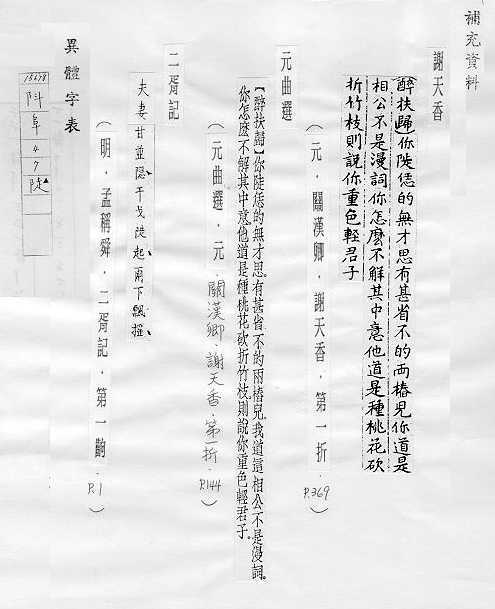 補充資料
謝天香
醉扶歸你陡恁的無才思有甚省不的兩樁兒你道是
相公不是漫詞你怎麼不解其中意他道是種桃花砍
折竹枝則說你重色輕君子
（元．關漢卿．謝天香．第一折．P.369）
元曲選
【醉扶歸】你陡恁的無才思。有甚省不的兩樁兒。我道這相公不是漫詞。
你怎麼不解其中意。他道是種桃花砍折竹枝。則說你重色輕君子。
（元曲選．元．關漢卿．謝天香．第一折．P.144）
二胥記
夫妻甘並隱干戈陡起、兩下飄搖、
（明．孟稱舜．二胥記．第一齣．P.1）
異體字表
13678
阧
阜
4
7
陡